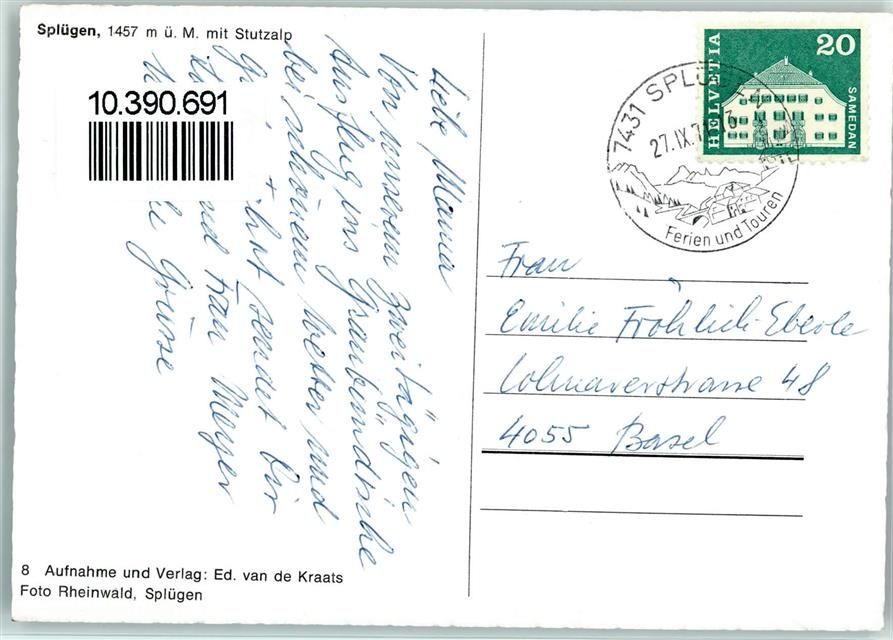 Splügen, 1457 m ü. M. mit Stutzalp
10.390.691
Liebe Mama
Von unserem zweitägigen
Ausflug ins Graubündische
bei schönem Wetter und
sendet Dir
und Frau Meyer
Grüsse
8 Aufnahme und Verlag: Ed. van de Kraats
Foto Rheinwald, Splügen
HELVETIA
20
SAMEDAN
7431 SPLÜGEN
27.IX.
Ferien und Touren
Frau
Emilie Fröhlich-Eberle
Colmarerstrasse 48
4055 Basel